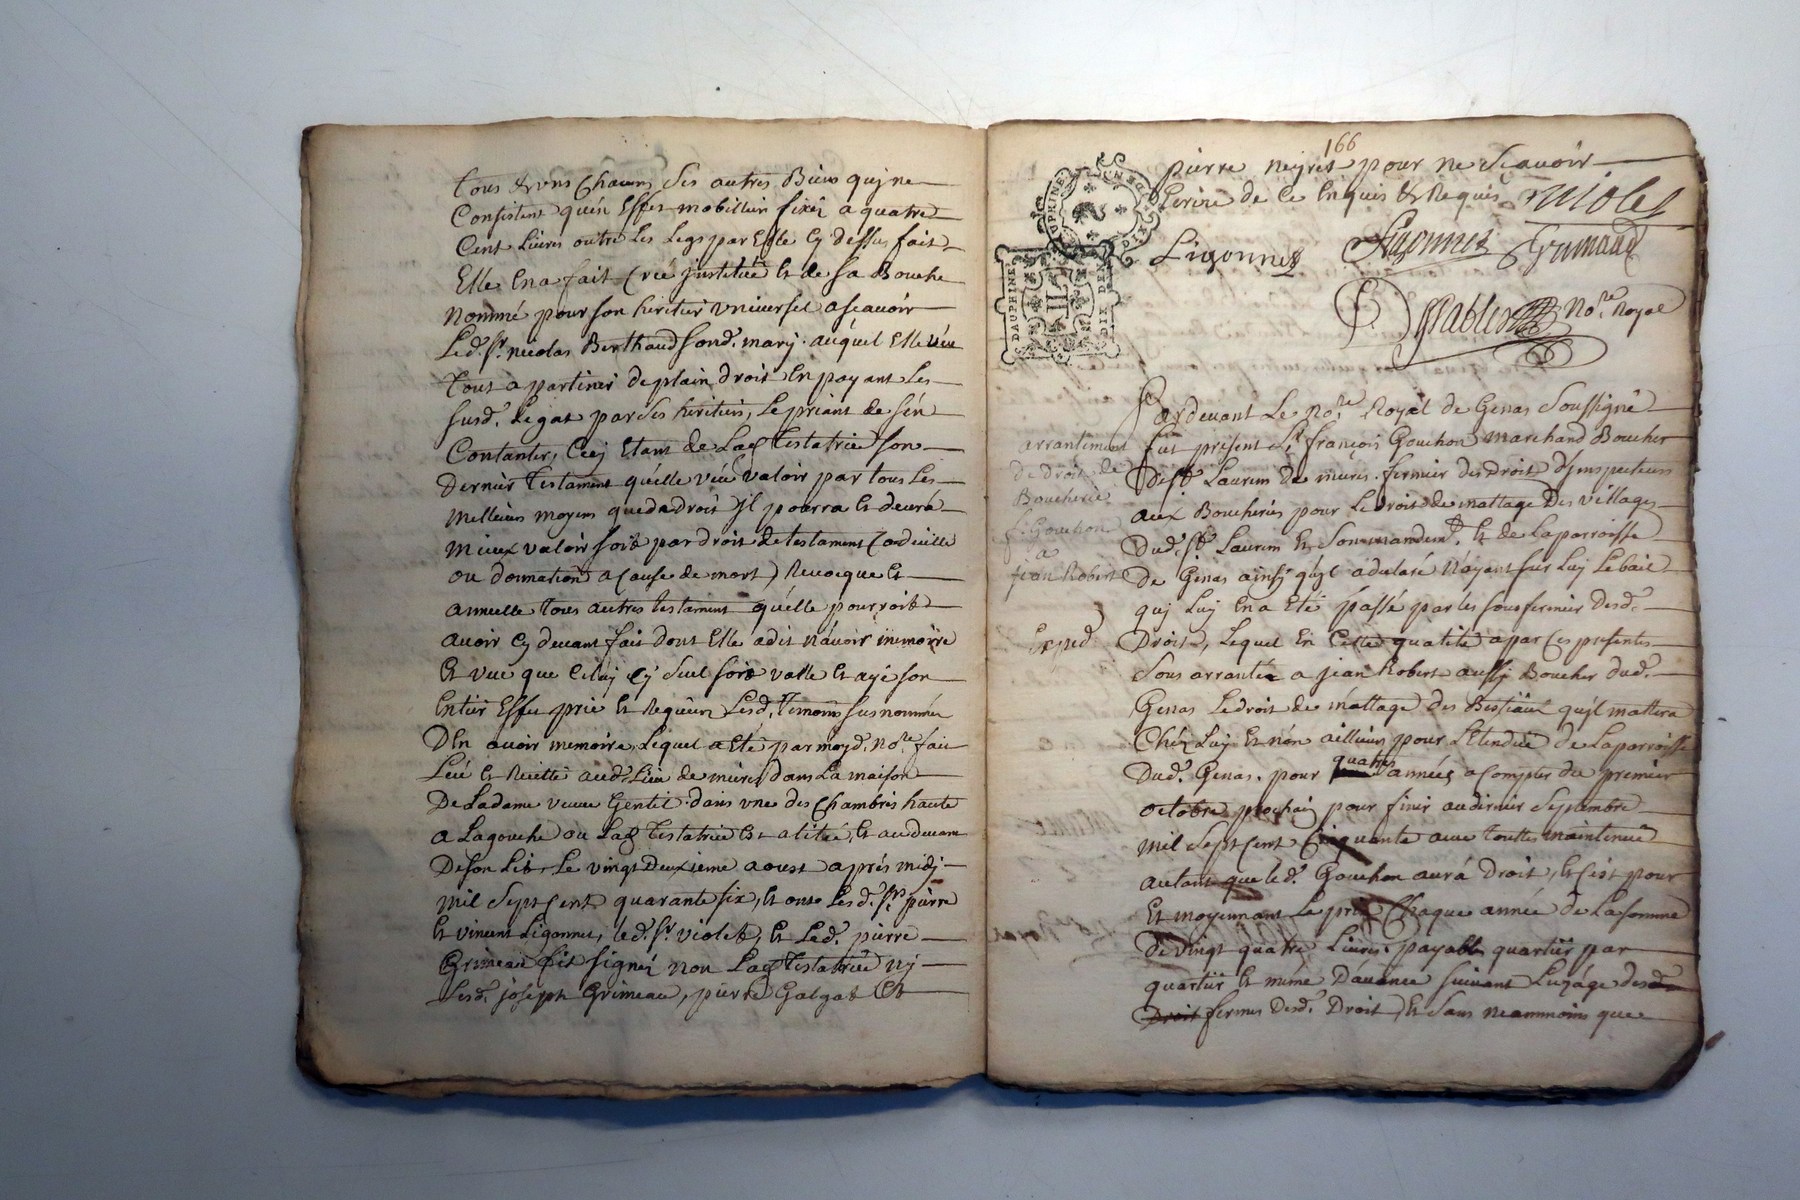 tous &uns Chacuns ses autres Biens quj ne
Consistent quén Effet mobillier fixér a quatre
Cent Livres outre Les Legs par Elle Cy dessus fait
Elle En a fait Créé justitué Et de sa Bouche
Nommé pour son heritier vniuersel ascauoir
Led. Sr. nicolas Berthaud sond. mary. auquel Elle véu
tout apartiner de plain droit En payant Les
susd. Legat par ses heritiers, Le priant de sén
Contanter, Cecj Etant de Lad Testatrice son
Dernier Testament quélle véu valoir par tous Les
Meilleurs moyens que de droit Jl pourra Et deura
Mieux valoir soit par droit de testament Codicille
ou donnation a Cause de mort) Reuocque Et
annulle tous autres testament quélle pourroit
auoir Cy deuant fait dont Elle a dit n'áuoir memoire
Et vue que Celuy Cy seul soit valle Et ayé son
Entier Effet prié Et Requeur Lesd. Temoins susnommés
DEn auoir memoire, Lequel a Eté par moyd. Nore. fait
Leü Et Recitté aud. Lieu de mures dans La maison
De Ladame veuue Gentil. dans vne des Chambres haute
a Lagouche ou Lad Testatrice Est alitée, Et audeuant
De son Lit, Le vingt Deuxieme aoust aprés midj
mil Sept Cent quarante six, Et onts Lesd. Srs. pierre
Et vincent Ligonnet, led. Sr. violet, Et Led. pierre
Grimeau signéz non Lad Testatrice nj
Lesd. joseph Grimeau, pierre Galgat Et
166
pierre neyret pour ne Scauoir
Ecrire de Ce Enquis & Requis violet
Ligonnet Ligonnet Grimaud
Nore. Royal
DAUPHINE
DIX DEN
DAUPHINE
II
DIX DEN
Pardeuant Le Nore. Royal de Genas Soussigné
fut présent Sr. françois Gouchon marchand Boucher
De St. Laurens de mures. fermier des Droit d'jnspecteurs
aux Boucheries pour Le Droit de mattage Des villages
Dud. St. Laurens Et Son mandemt. Et de Laparroisse
De Genas ainsj qujl a declaré N'áyant sur Luj Le bail
quj Luj En a Eté passé par les sous fermier Desd.
Droits, Lequel En Cette qualité a par Ces presentes
Sous arrantée a jean Robert aussj Boucher dud.
Genas Le droit de máttage des Bestiaux qujl mattera
Chés Luy Et nón ailleurs pour L'Etenduë de Laparroisse
Dud. Genas. pour quatres années a Compter du premier
octobre prochain pour finir audernier Septembre
Mil Sept Cent Cinquante auec touttes maintenuë
autant que led. Gouchon aurá Droit, Et Cest pour
Et moyennant Le prix Chaque année de La somme
De Vingt quatre Liures. payable quartiér par
quartiér Et méme Dauance suiuant Luzáge desd
Droit fermes Desd. Droit) Et Sans neammoins que
arrantement
de droit de
Boucherie
f. Gouchon
a
jean Robert
Exped.